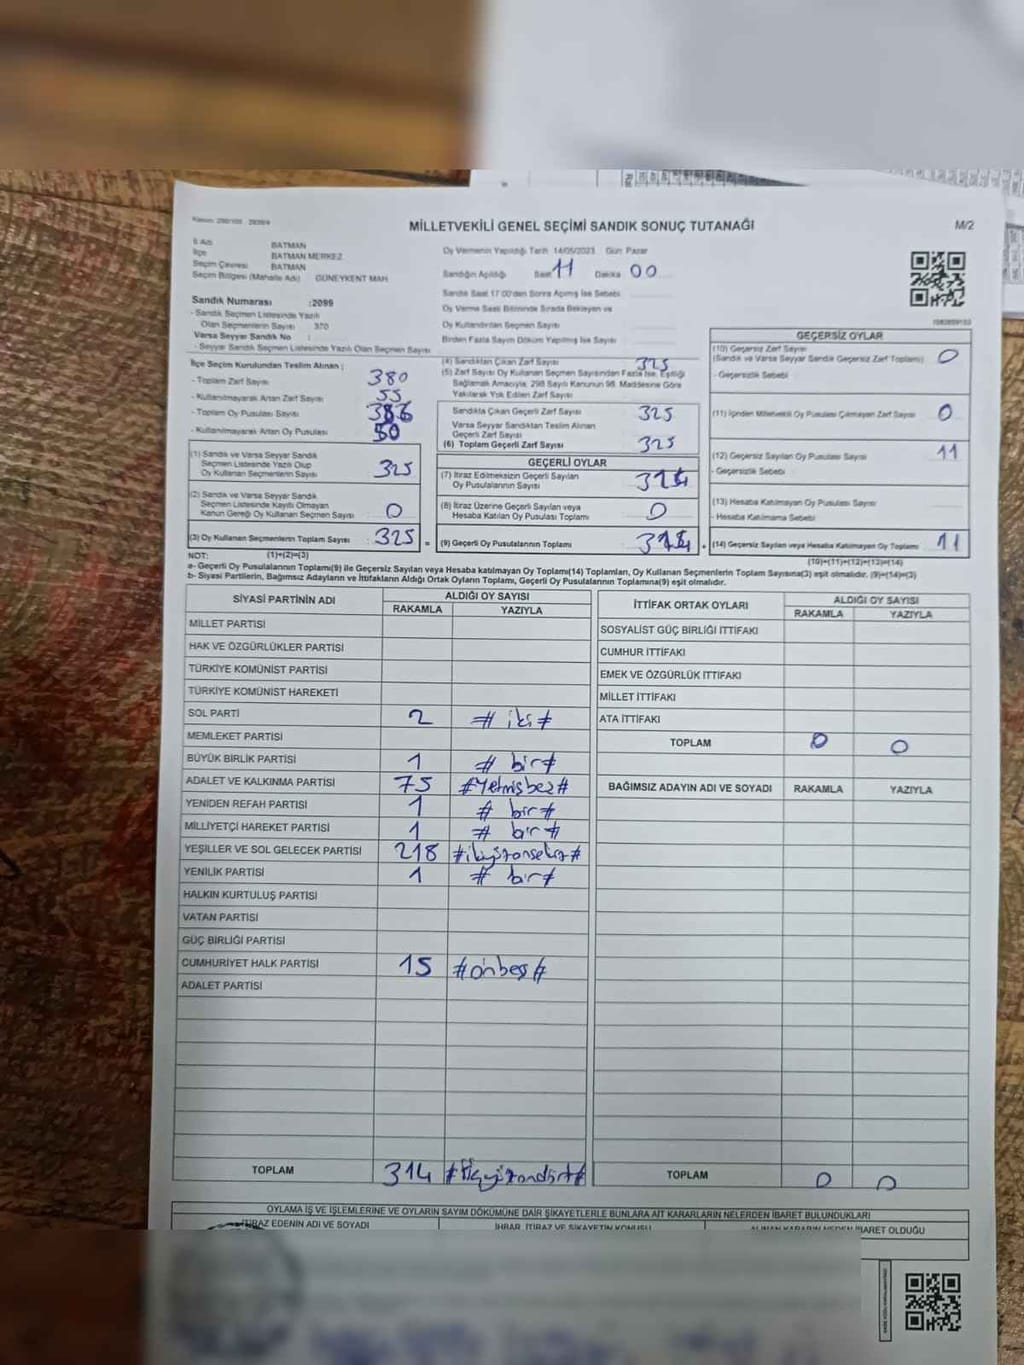 MİLLETVEKİLİ GENEL SEÇİMİ SANDIK SONUÇ TUTANAĞI
M/2
İl Adı BATMAN
İlçe BATMAN MERKEZ
Seçim Çevresi BATMAN
Seçim Bölgesi (Mahalle Adı) GÜNEYKENT MAH.
Sandık Numarası :2099
- Sandık Seçmen Listesinde Yazılı
Olan Seçmenlerin Sayısı 370
Varsa Seyyar Sandık No :
- Seyyar Sandık Listesinde Yazılı Olan Seçmen Sayısı
Oy Vermenin Yapıldığı Tarih 14/05/2023 Gün Pazar
Sandığın Açıldığı Saat 11 Dakika 00
Sandık Saat 17:00'den Sonra Açılmış İse Sebebi
Oy Verme Saati Bitiminde Sırada Bekleyen ve
Oy Kullandırılan Seçmen Sayısı
Birden Fazla Sayım Döküm Yapılmış İse Sayısı
İlçe Seçim Kurulundan Teslim Alınan ;
- Toplam Zarf Sayısı 380
- Kullanılmayarak Artan Zarf Sayısı 55
- Toplam Oy Pusulası Sayısı
- Kullanılmayarak Artan Oy Pusulası 50
(1) Sandık ve Varsa Seyyar Sandık
Seçmen Listesinde Yazılı Olup
Oy Kullanan Seçmenlerin Sayısı 325
(2) Sandık ve Varsa Seyyar Sandık
Seçmen Listesinde Kayıtlı Olmayan
Kanun Gereği Oy Kullanan Seçmen Sayısı 0
(3) Oy Kullanan Seçmenlerin Toplam Sayısı 325 =
(4) Sandıktan Çıkan Zarf Sayısı 325
(5) Zarf Sayısı Oy Kullanan Seçmen Sayısından Fazla İse, Eşitliği
Sağlamak Amacıyla, 298 Sayılı Kanunun 98. Maddesine Göre
Yakılarak Yok Edilen Zarf Sayısı
Sandıkta Çıkan Geçerli Zarf Sayısı 325
Varsa Seyyar Sandıktan Teslim Alınan
Geçerli Zarf Sayısı
(6) Toplam Geçerli Zarf Sayısı 325
GEÇERLİ OYLAR
(7) İtiraz Edilmeksizin Geçerli Sayılan
Oy Pusulalarının Sayısı 314
(8) İtiraz Üzerine Geçerli Sayılan veya
Hesaba Katılan Oy Pusulası Toplamı 0
(9) Geçerli Oy Pusulalarının Toplamı 314 +
GEÇERSİZ OYLAR
(10) Geçersiz Zarf Sayısı
(Sandık ve Varsa Seyyar Sandık Geçersiz Zarf Toplamı) 0
- Geçersizlik Sebebi
(11) İçinden Milletvekili Oy Pusulası Çıkmayan Zarf Sayısı 0
(12) Geçersiz Sayılan Oy Pusulası Sayısı 11
- Geçersizlik Sebebi
(13) Hesaba Katılmayan Oy Pusulası Sayısı
- Hesaba Katılmama Sebebi
(14) Geçersiz Sayılan veya Hesaba Katılmayan Oy Toplamı 11
NOT: (1)+(2)=(3) (10)+(11)+(12)+(13)=(14)
a- Geçerli Oy Pusulalarının Toplamı(9) ile Geçersiz Sayılan veya Hesaba katılmayan Oy Toplamı(14) Toplamları, Oy Kullanan Seçmenlerin Toplam Sayısına(3) eşit olmalıdır. (9)+(14)=(3)
b- Siyasi Partilerin, Bağımsız Adayların ve İttifakların Aldığı Ortak Oyların Toplamı, Geçerli Oy Pusulalarının Toplamına(9) eşit olmalıdır.
SİYASİ PARTİNİN ADI ALDIĞI OY SAYISI
RAKAMLA YAZIYLA
MİLLET PARTİSİ
HAK VE ÖZGÜRLÜKLER PARTİSİ
TÜRKİYE KOMÜNİST PARTİSİ
TÜRKİYE KOMÜNİST HAREKETİ
SOL PARTİ 2 # iki #
MEMLEKET PARTİSİ
BÜYÜK BİRLİK PARTİSİ 1 # bir #
ADALET VE KALKINMA PARTİSİ 75 #Yetmişbeş#
YENİDEN REFAH PARTİSİ 1 # bir #
MİLLİYETÇİ HAREKET PARTİSİ 1 # bir #
YEŞİLLER VE SOL GELECEK PARTİSİ 218 #ikiyüzonsekiz#
YENİLİK PARTİSİ 1 # bir #
HALKIN KURTULUŞ PARTİSİ
VATAN PARTİSİ
GÜÇ BİRLİĞİ PARTİSİ
CUMHURİYET HALK PARTİSİ 15 #onbeş#
ADALET PARTİSİ
TOPLAM 314 #Üçyüzondört#
İTTİFAK ORTAK OYLARI ALDIĞI OY SAYISI
RAKAMLA YAZIYLA
SOSYALİST GÜÇ BİRLİĞİ İTTİFAKI
CUMHUR İTTİFAKI
EMEK VE ÖZGÜRLÜK İTTİFAKI
MİLLET İTTİFAKI
ATA İTTİFAKI
TOPLAM 0 0
BAĞIMSIZ ADAYIN ADI VE SOYADI RAKAMLA YAZIYLA
TOPLAM 0 0
OYLAMA İŞ VE İŞLEMLERİNE VE OYLARIN SAYIM DÖKÜMÜNE DAİR ŞİKAYETLERLE BUNLARA AİT KARARLARIN NELERDEN İBARET BULUNDUKLARI
İTİRAZ EDENİN ADI VE SOYADI İHBAR, İTİRAZ VE ŞİKAYETİN KONUSU ALINAN KARARIN NEDEN İBARET OLDUĞU